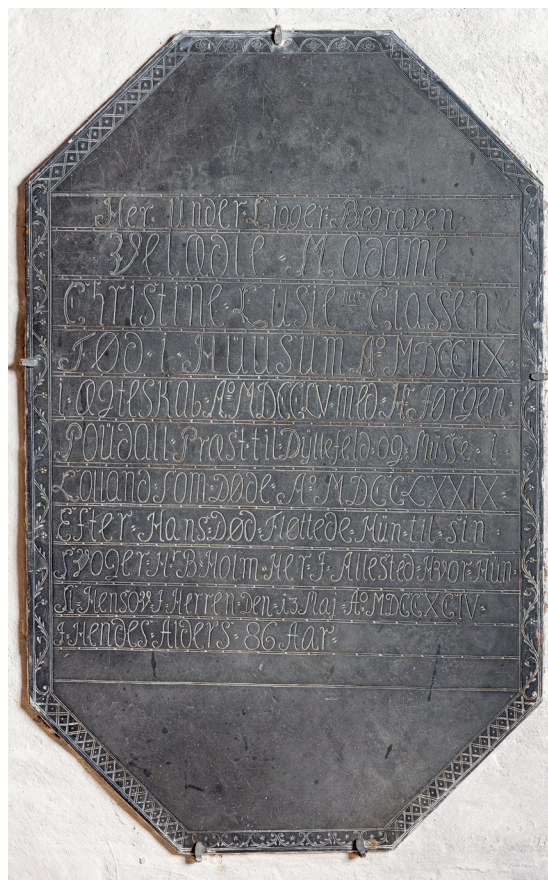 Her Under Ligger Begraven
Velædle Madame
Christine Lusie Classen
Fød i Huusum Aº MDCCIIX
i ægteskab Aº MDCCCV med Hr Jørgen
Poüdall Præst til Dÿllefeld og Musse i
Lalland som Døde Aº MDCCLXXIX
Efter Hans Død Fløttede Hün til sin
Svoger Hr B Holm Her J Allested Hvor Hün
Hensov J Herren Den 13 Maj A MDCCXCIV
J Hendes Alders 86 Aar